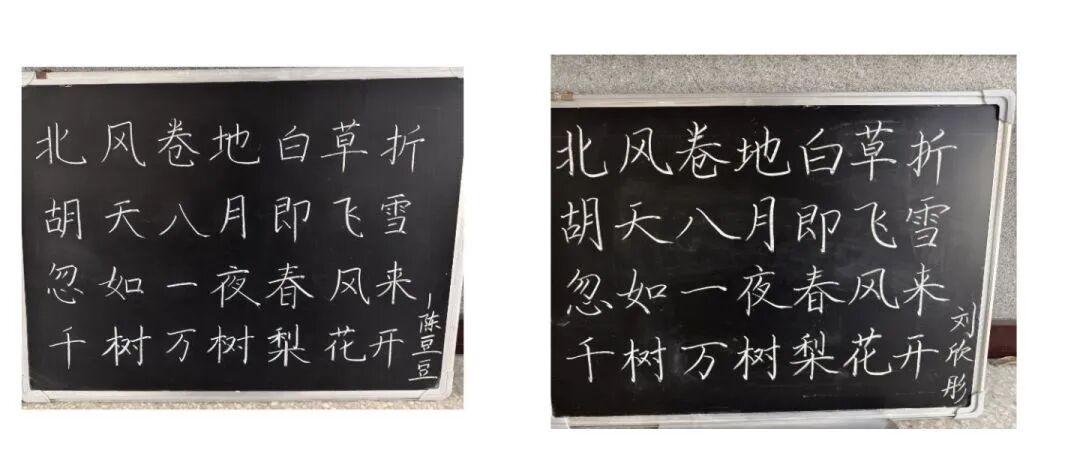 北风卷地白草折
胡天八月即飞雪
忽如一夜春风来
千树万树梨花开
陈豆豆
北风卷地白草折
胡天八月即飞雪
忽如一夜春风来
千树万树梨花开
刘欣彤